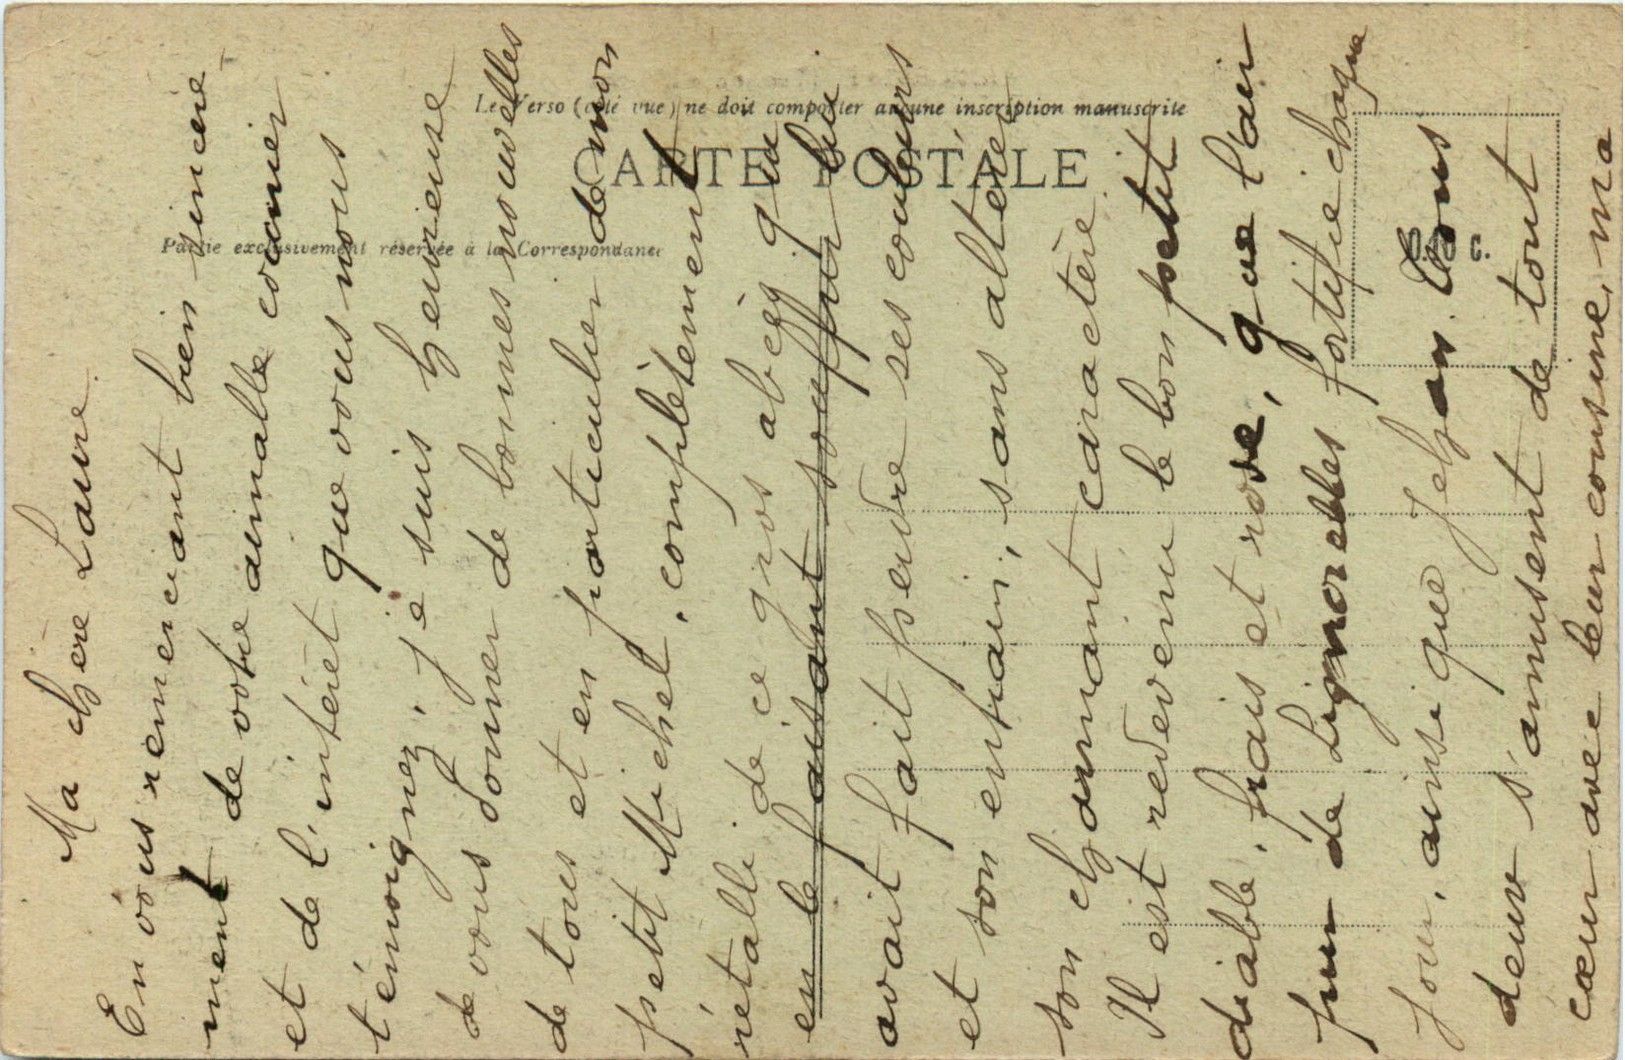 Le Verso (côté vue) ne doit comporter aucune inscription manuscrite
CARTE POSTALE
Partie exclusivement réservée à la Correspondance
0.10 C.
Ma chère Laure
En vous remerciant bien sincère-
ment de votre aimable courrier
et de l'intérêt que vous nous
témoignez, je suis heureuse
de vous donner de bonnes nouvelles
de tous et en particulier de mon
petit Michel, complètement
rétabli de ce gros abcès qui
en le faisant souffrir lui
avait fait perdre ses couleurs
et son entrain, sans altérer
son charmant caractère.
Il est redevenu le bon petit
diable, frais et rose, que l'air
pur de Lignorelles fortifie chaque
jour, ainsi que Jehan. Tous
deux s'amusent de tout
cœur avec leur cousine, ma